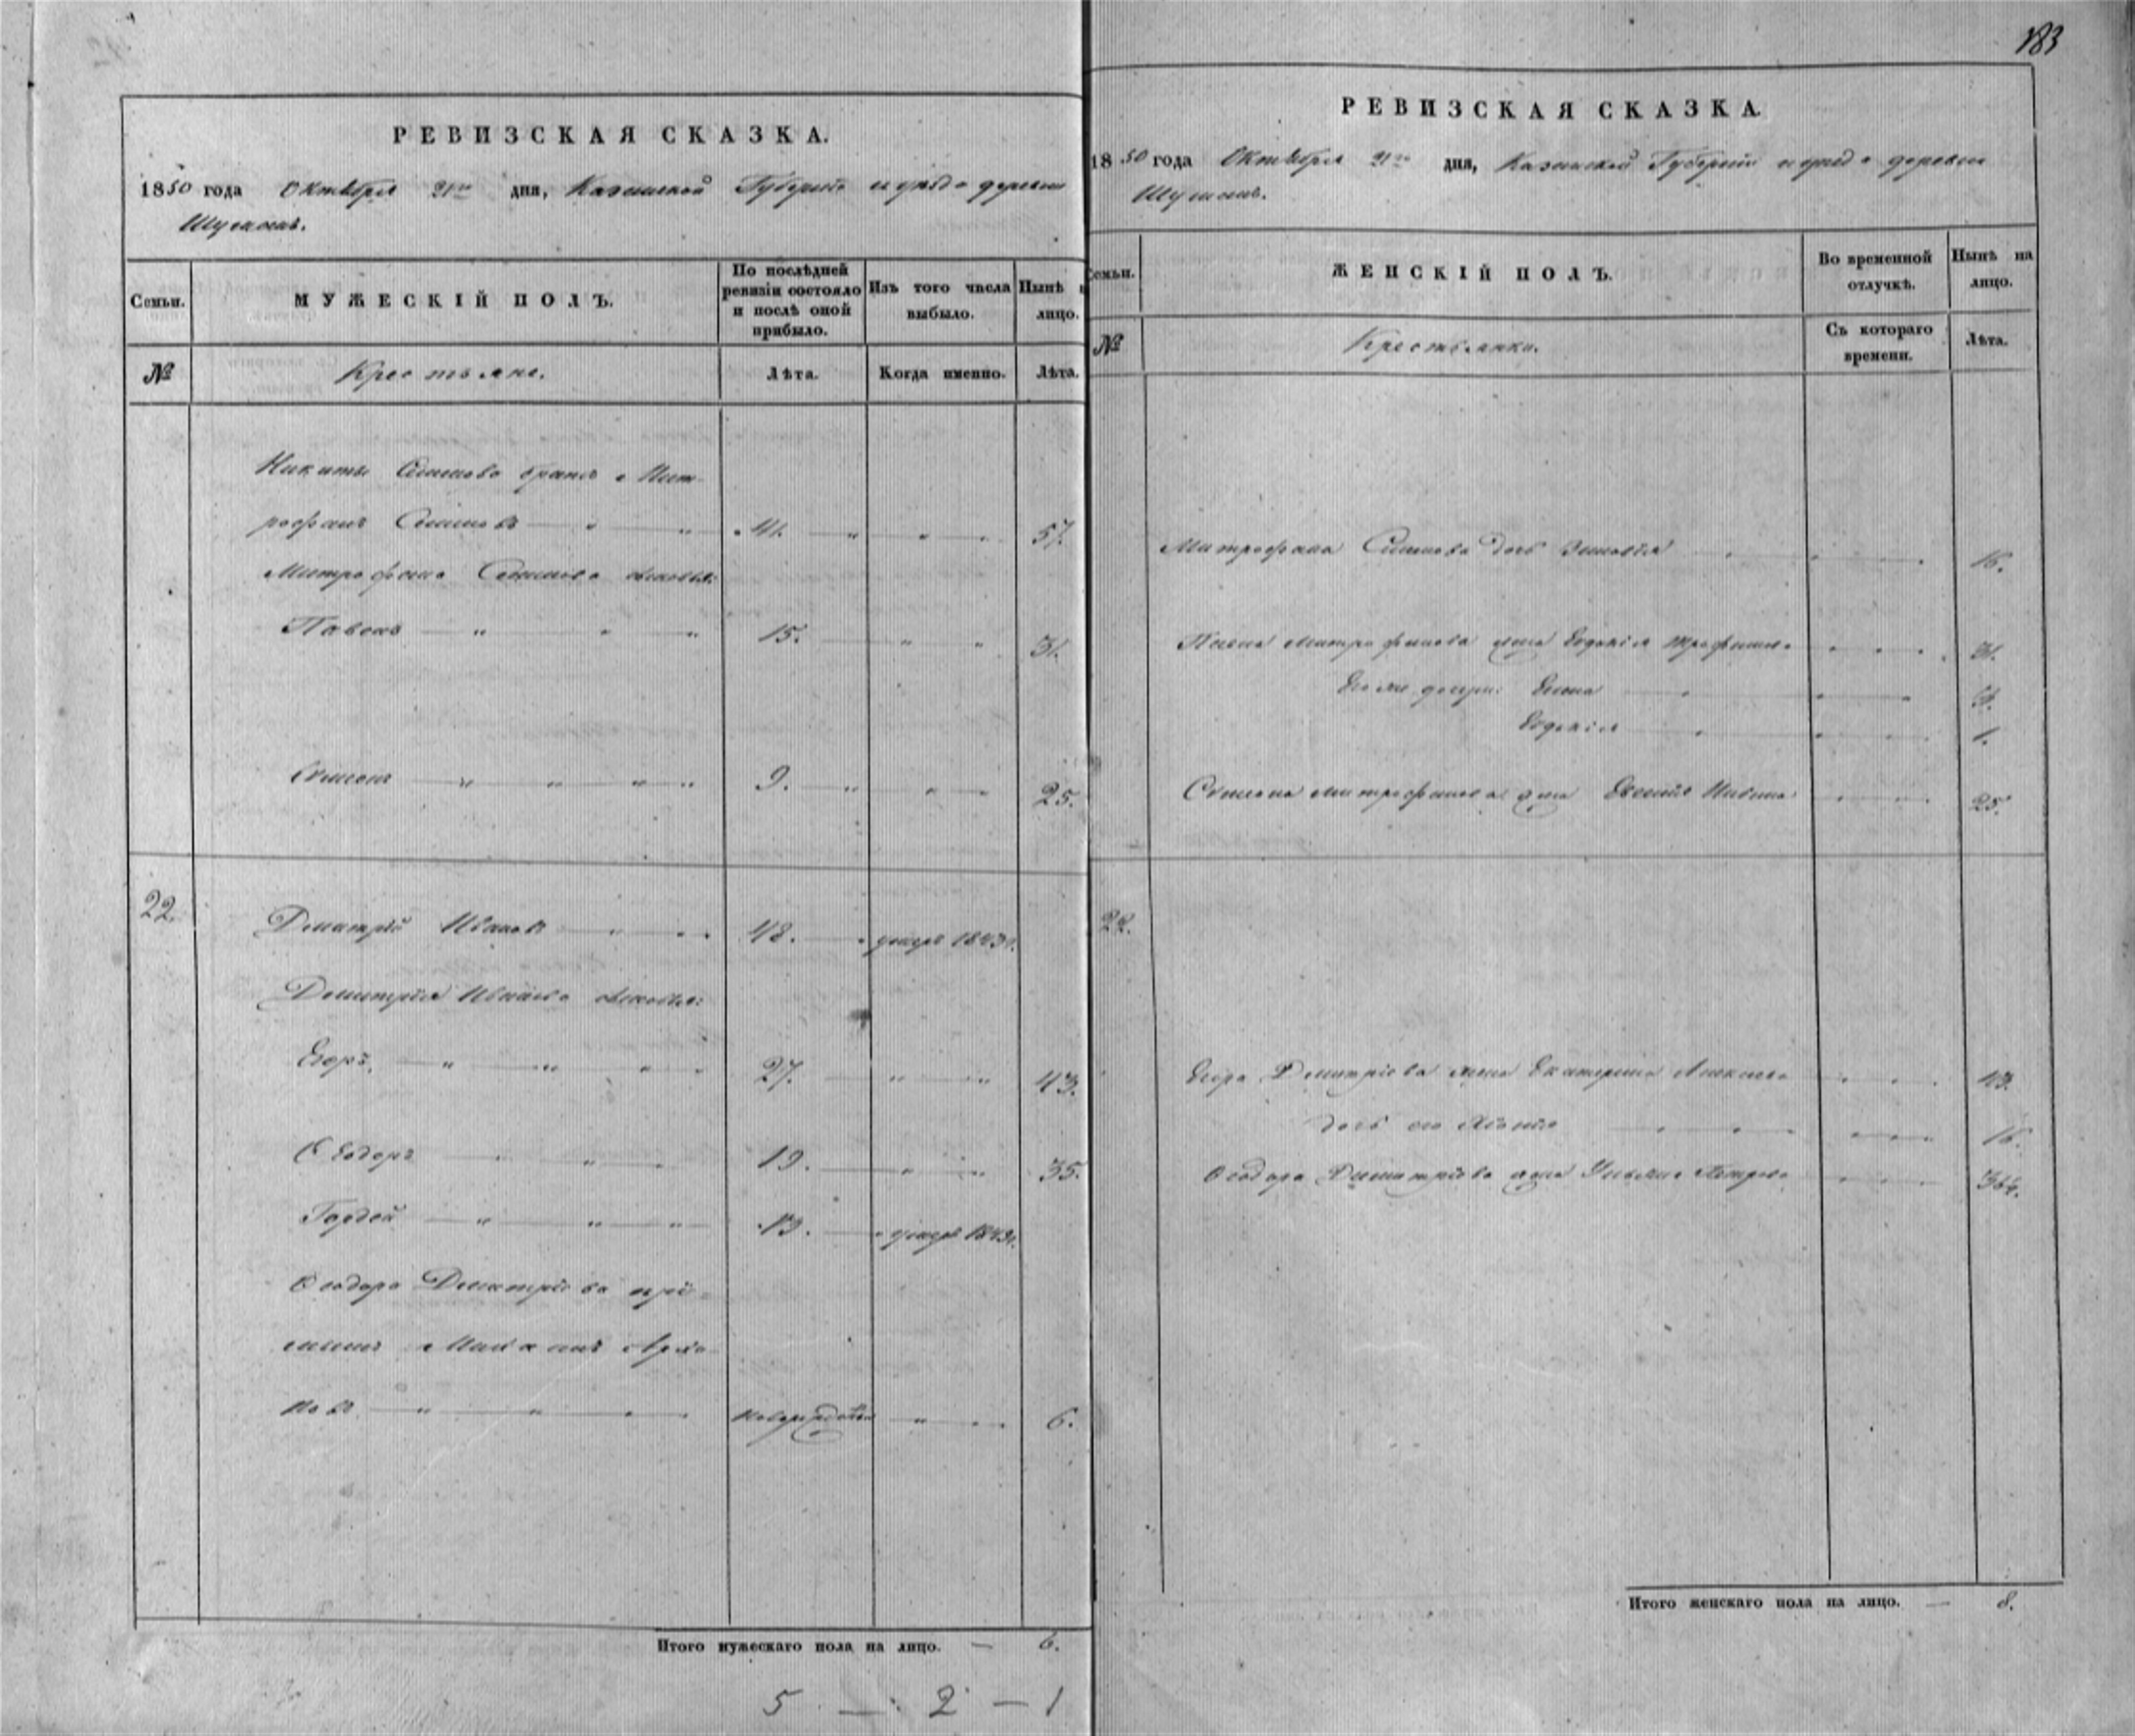 183
РЕВИЗСКАЯ СКАЗКА.
1850 года Октября 21го дня, Казанской Губернiи и уезда деревни
Семьи.
МУЖЕСКІЙ ПОЛЪ.
По послѣдней ревизіи состояло и послѣ оной прибыло.
Изъ того числа выбыло.
Нынѣ лицо.
№
Крестьяне.
Лѣта.
Когда именно.
Лѣта.
Никиты Семенова братъ Мит-
рофанъ Семеновъ 41. 57.
Митрофана Семенова сыновья:
Павелъ 15. 31.
Симеонъ 9. 25.
22.
Дмитрій Ивановъ 48. умеръ 1843г.
Димитрія Иванова сыновья:
Егоръ 27. 43.
Ѳеодоръ 19. 35.
Гордей 13. умеръ
Ѳеодора Дмитріева прі-
емышъ
новъ 6.
Итого мужескаго пола на лицо. — 6.
5 — 2 — 1
РЕВИЗСКАЯ СКАЗКА
1850 года Октября 21го дня, Казанской Губернiи и уезда деревни
Семьи.
ЖЕНСКІЙ ПОЛЪ.
Во временной отлучкѣ.
Нынѣ на лицо.
№
Крестьянки.
Съ котораго времени.
Лѣта.
Митрофана Семенова дочь Зиновія 16.
Павла Митрофанова жена Евдокія Трофимова 31.
Его же дочери: Елена
Евдокія 1.
Симеона Митрофанова жена 25.
22.
Егора Дмитріева жена Екатерина 43.
дочь его 16.
Ѳеодора Димитріева жена Ульяна Петрова
Итого женскаго пола на лицо. — 8.